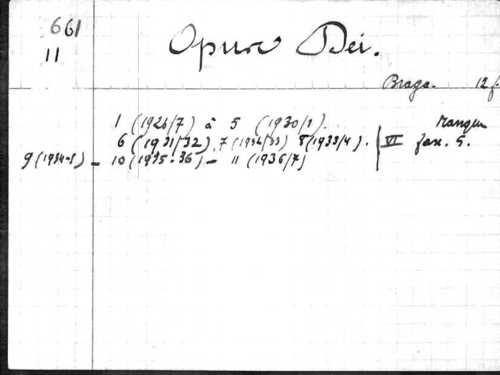 661
11
Opus Dei.
Braga. 12 f.
1 (1926/7) à 5 (1930/1). manque
6 (1931/32) 7 (1932/33) 8 (1933/4). VI fasc. 5.
9 (1934-5) - 10 (1935-36) - 11 (1936/7)